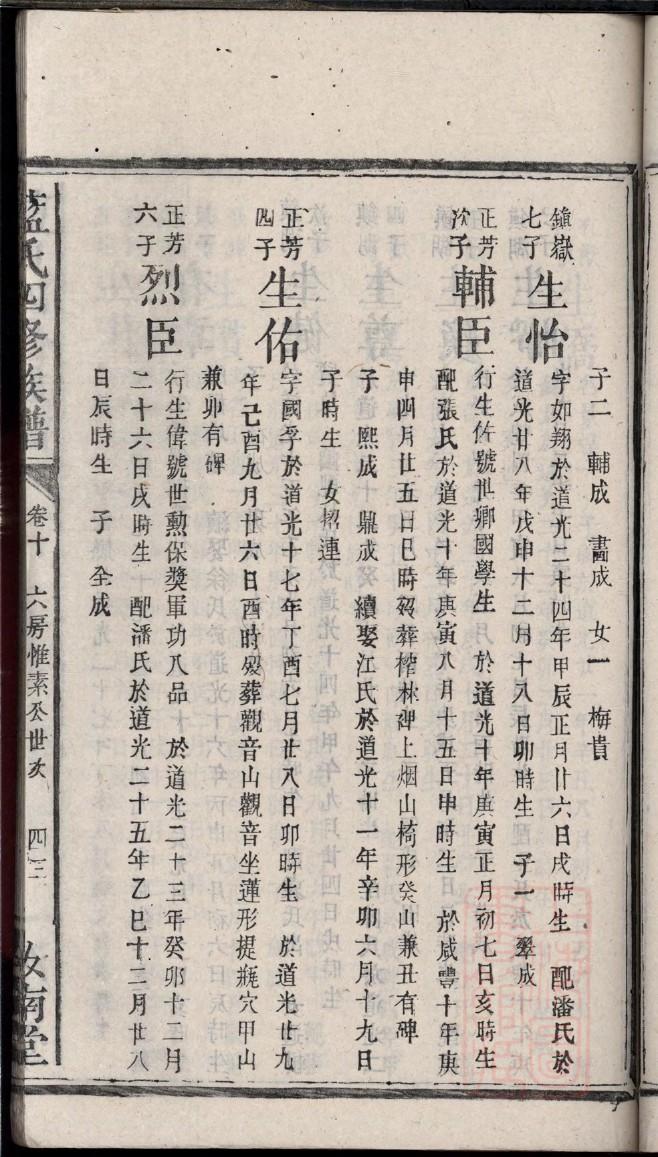 子二 輔成 書成 女一 梅貴
鎮嶽七子 生怡 字如翔於道光二十四年甲辰正月廿六日戌時生 配潘氏於
道光廿八年戊申十二月十八日卯時生 子一 翠成
正芳次子 輔臣 行生佐號世卿國學生 於道光十年庚寅正月初七日亥時生
配張氏於道光十年庚寅八月十五日申時生 於咸豐十年庚
申四月廿五日巳時歿葬榨林沖上烟山椅形癸山兼丑有碑
子 熙成 鼎成 續娶江氏於道光十一年辛卯六月十九日
子時生 女招連
正芳四子 生佑 字國孚於道光十七年丁酉七月廿八日卯時生 於道光廿九
年己酉九月廿六日酉時歿葬觀音山觀音坐蓮形提瓶穴甲山
兼卯有碑
正芳六子 烈臣 行生偉號世勳保獎軍功八品 於道光二十三年癸卯十二月
二十六日戌時生 配潘氏於道光二十五年乙巳十二月廿八
日辰時生 子 全成
藍氏四修族譜 卷十 六房惟素公世次 四三 汝南堂